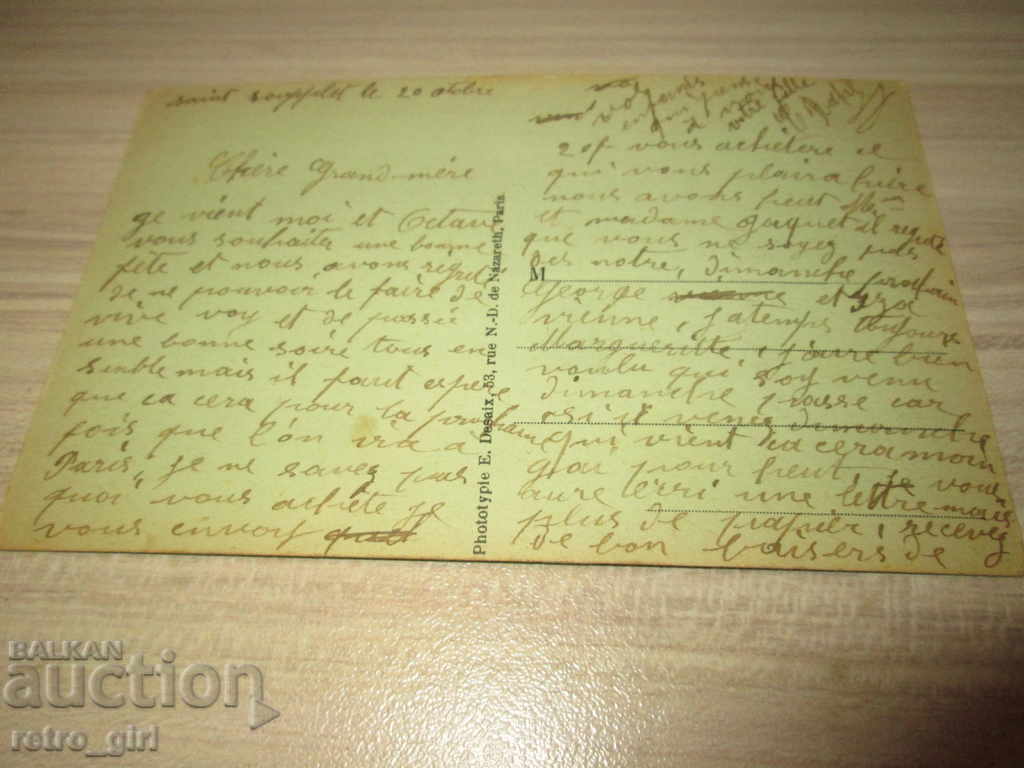 saint soupplet le 20 octobre
Chère Grand-mère
ge vient moi et Octave
vous souhaiter une bonne
fête et nous avons regret
de ne pouvoir le faire de
vive voy et de passé
une bonne soire tous en
semble mais il faut espéré
que ca cera pour la prochaine
fois que l'on vra a
Paris, je ne savez pas
quoi vous achété je
vous envoy
Phototypie E. Desaix, 53, rue N.-D. de Nazareth, Paris
M
vos
enfants
qui pense
a vous
votre fille
20f vous achétére ce
qui vous plaira faire
nous avons
et madame
que vous ne soyez pas
des notre, dimanche prochain
George et
vienne, toujours
Margueritte, bien
voulu qui soy venu
dimanche passe car
si il venez dimanche
qui vient ca cera moin
gai pour
aure une lettre mais
plus de papier, recevez
de bon baisers de
BALKAN
auction
retro_girl